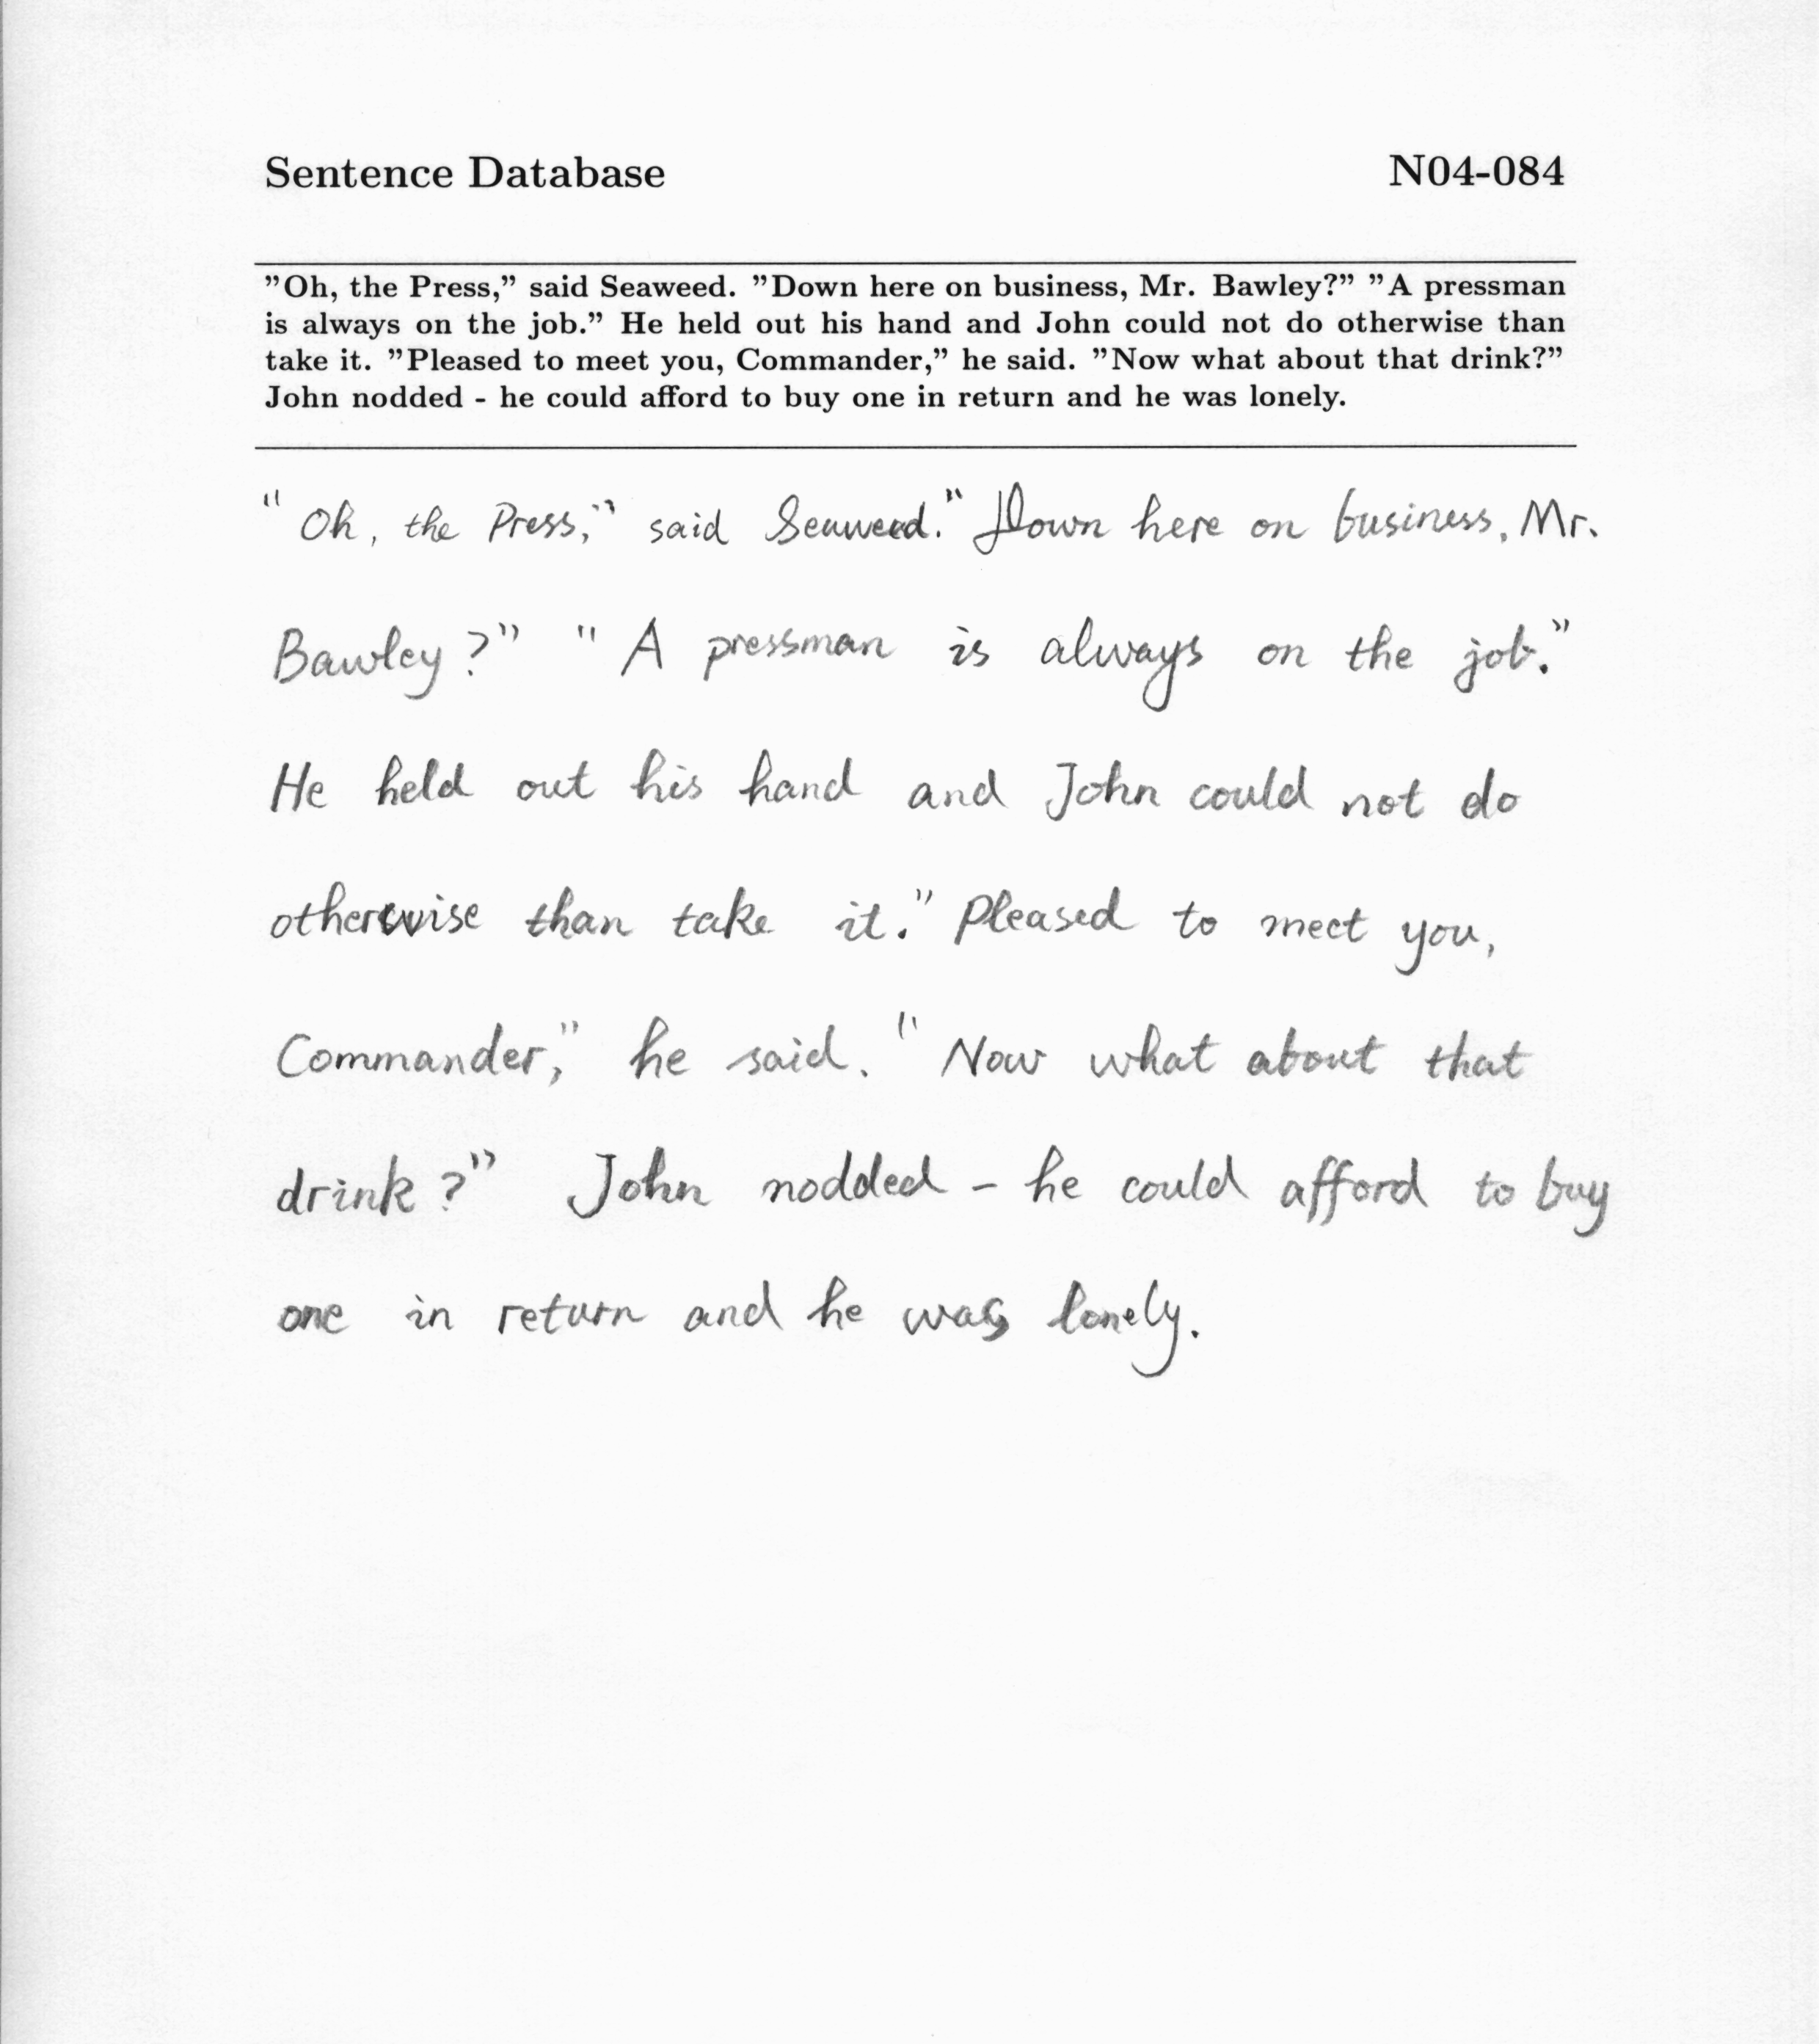 Sentence Database N04-084
”Oh, the Press,” said Seaweed. ”Down here on business, Mr. Bawley?” ”A pressman
is always on the job.” He held out his hand and John could not do otherwise than
take it. ”Pleased to meet you, Commander,” he said. ”Now what about that drink?”
John nodded - he could afford to buy one in return and he was lonely.
“Oh, the Press,” said Seaweed.“ Down here on business, Mr.
Bawley?” “A pressman is always on the job.”
He held out his hand and John could not do
otherwise than take it.” Pleased to meet you,
Commander,” he said. “Now what about that
drink?” John nodded - he could afford to buy
one in return and he was lonely.